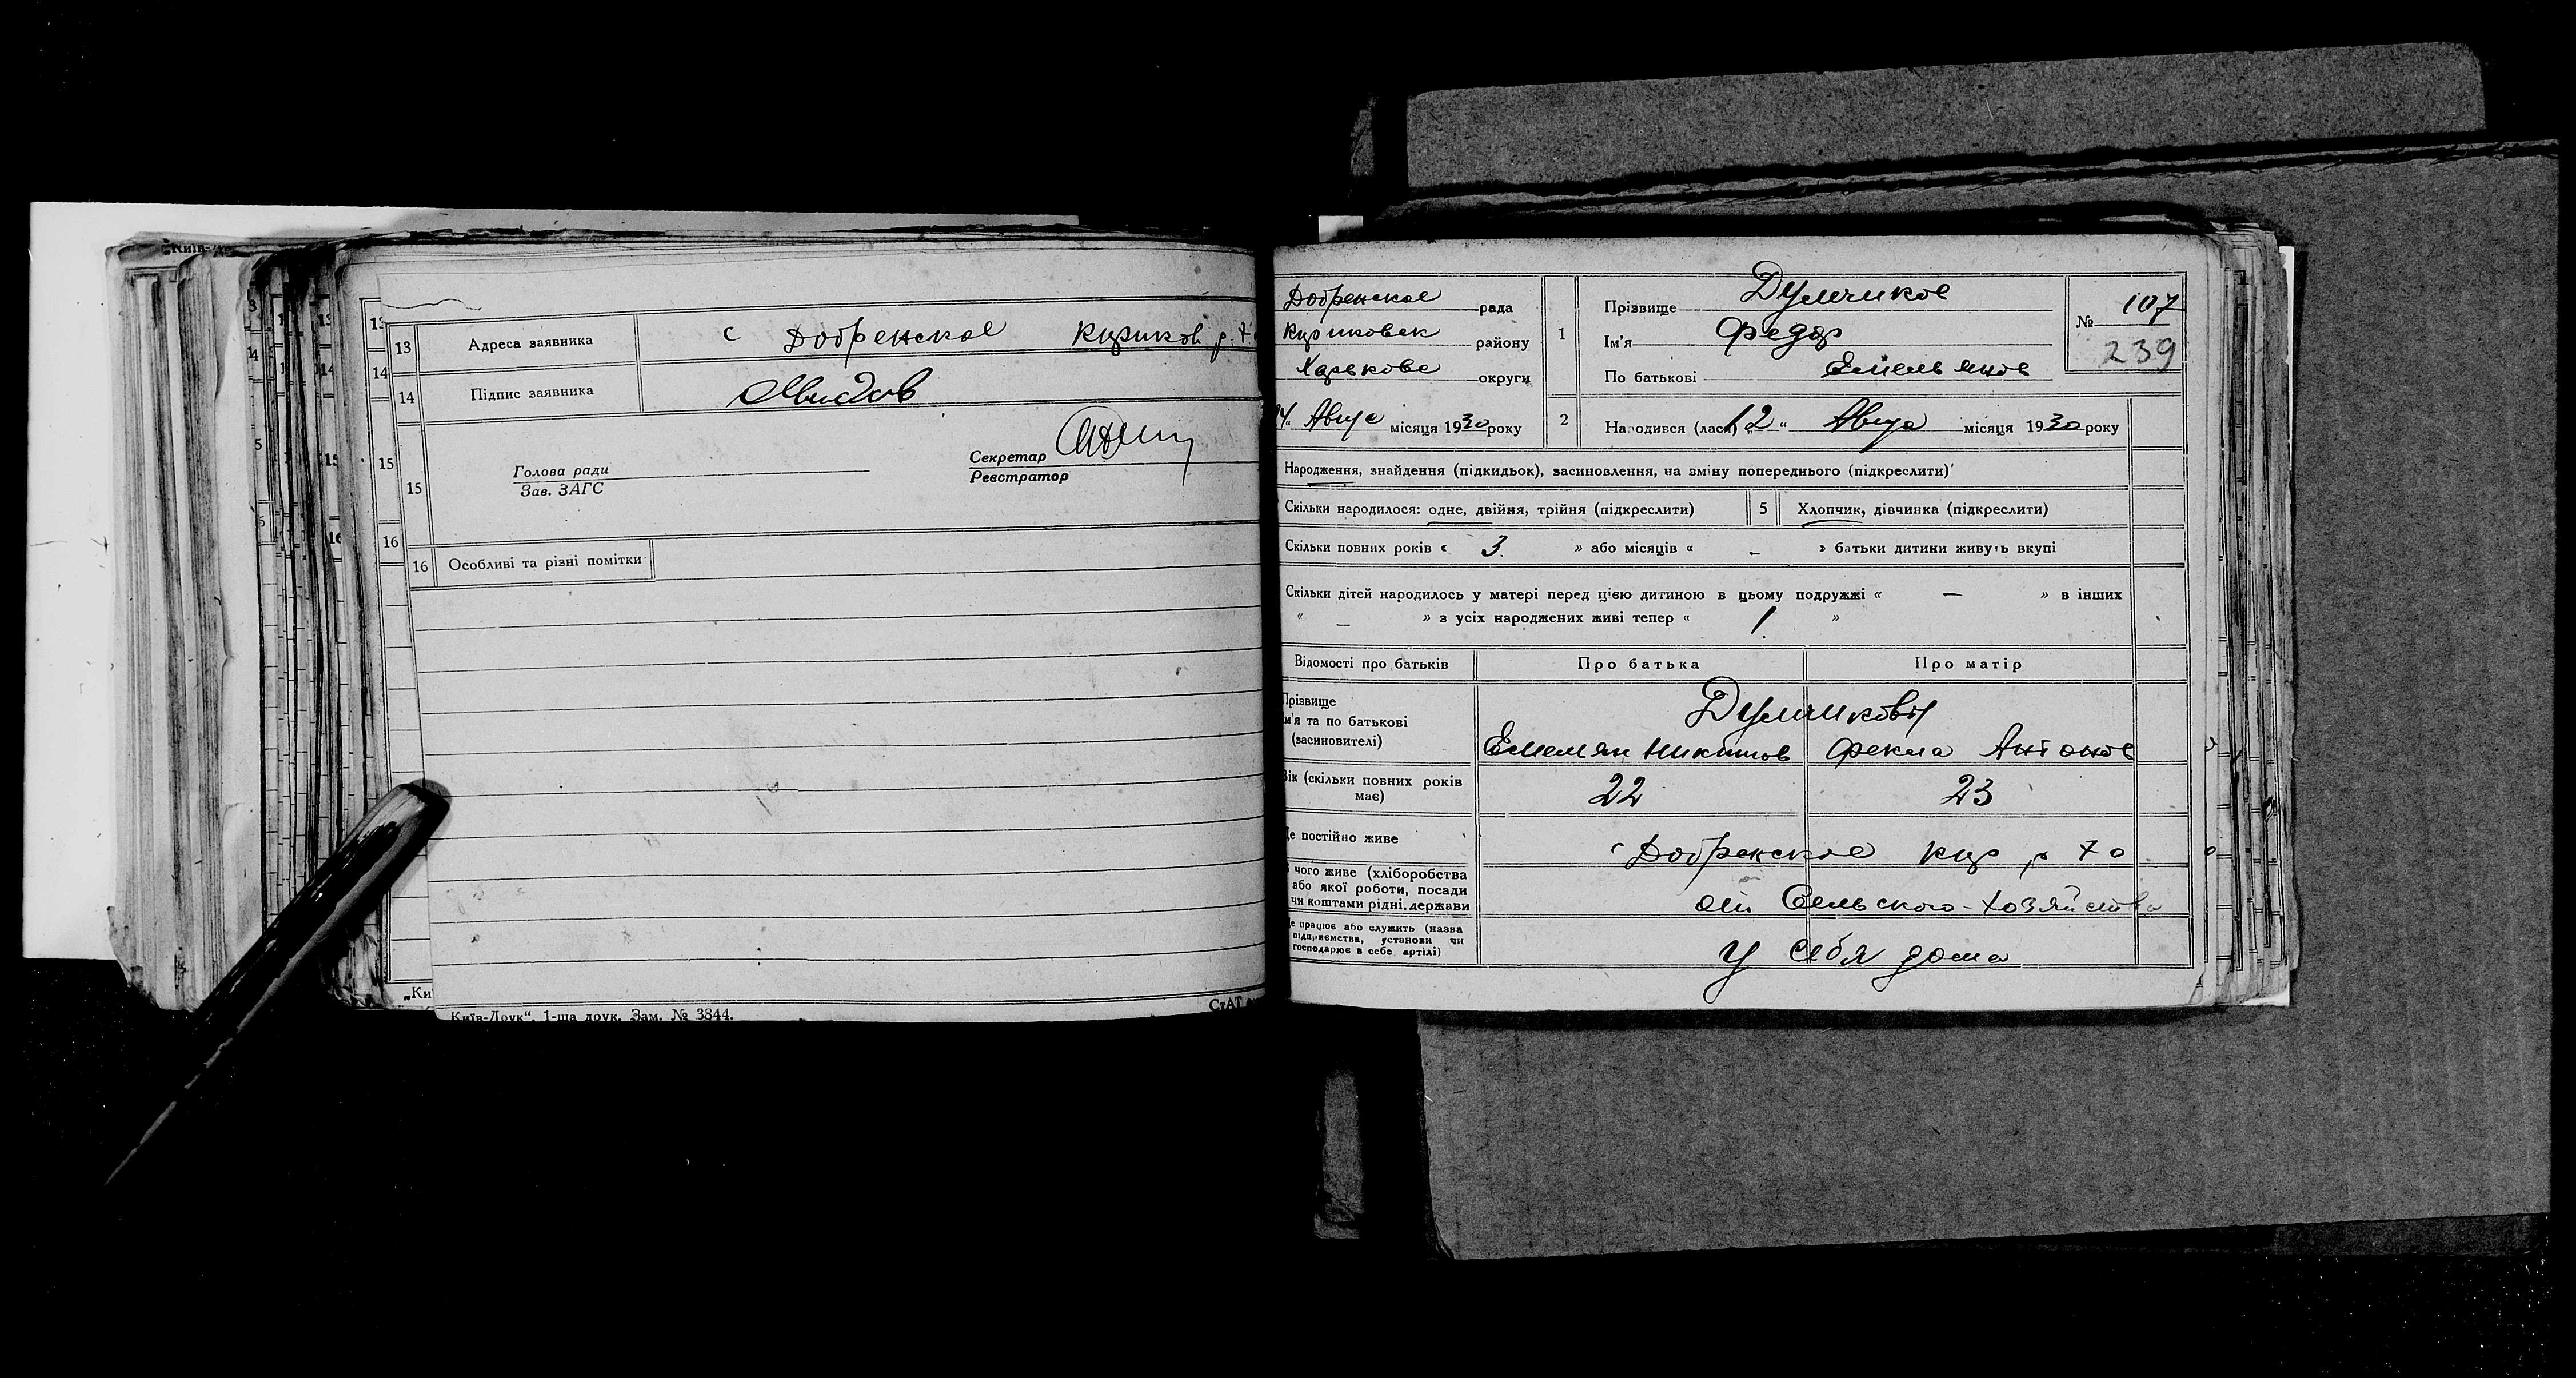 13 Адреса заявника с Добренское Куриков р. Х
14 Підпис заявника
15 Голова ради
Зав. ЗАГС
Секретар
Реєстратор
16 Особливі та різні помітки
„Київ-Друк“. 1-ша друк. Зам. № 3844.
Добренское рада
Куриковск району
Харькове округи
1 Прізвище Думчиков
Ім'я Федор
По батькові Емельянов
№ 107
239
14 „ Авгус місяця 1930 року
2 Народився (лася) „12“ Авгуа місяця 1930 року
Народження, знайдення (підкидьок), засиновлення, на зміну попереднього (підкреслити)
Скільки народилося: одне, двійня, трійня (підкреслити) 5 Хлопчик, дівчинка (підкреслити)
Скільки повних років « 3 » або місяців « – » батьки дитини живуть вкупі
Скільки дітей народилось у матері перед цією дитиною в цьому подружжі « – » в інших
« – » з усіх народжених живі тепер « 1 »
Відомості про батьків Про батька Про матір
Прізвище
ім'я та по батькові
(засиновителі)
Думчиковы
Емемльян Никитов Фекла Антонов
Вік (скільки повних років
має)
22 23
Де постійно живе с Добренское Кур р Хо
чого живе (хліборобства
або якої роботи, посади
чи коштами рідні, держави
от Сельского-хозяйства
Де працює або служить (назва
підприємства, установи чи
господарює в себе, артілі)
у себя дома